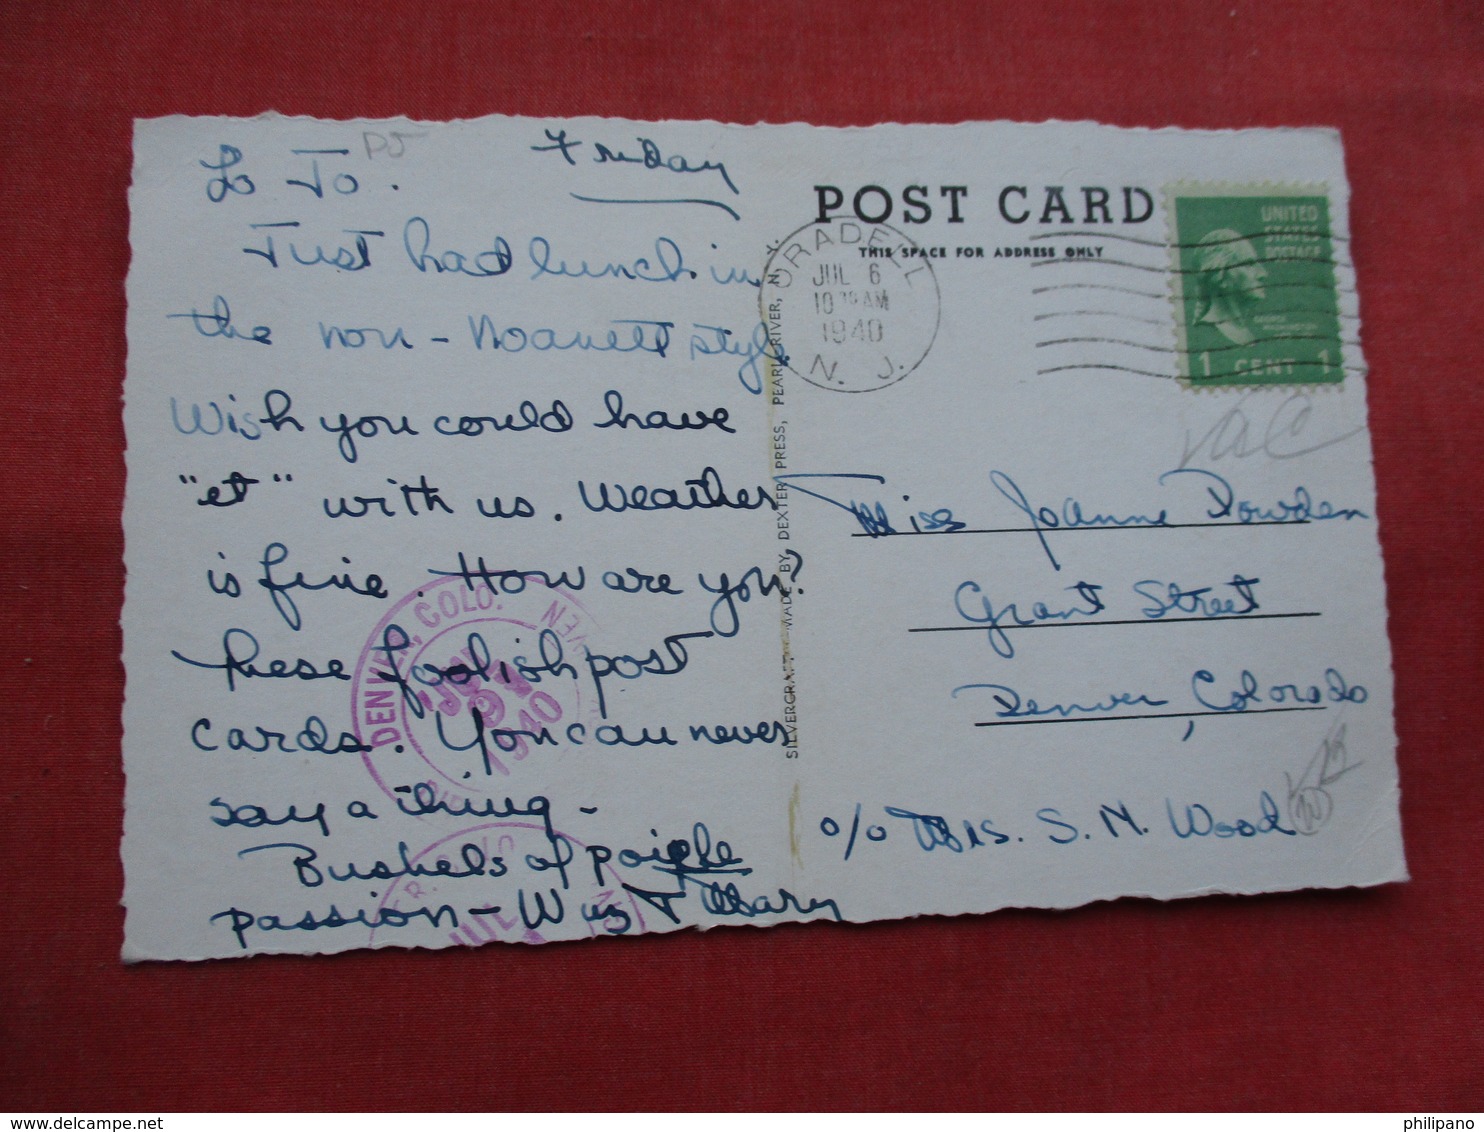 Friday
Lo Jo.
Just had lunch in
the non-Noanett style
Wish you could have
"et" with us. Weather
is fine. How are you?
these foolish post
cards. You can never
say a thing -
Bushels of
passion - Wuz T Mary
SILVERCRAFT MADE BY DEXTER PRESS, PEARL RIVER, N. Y.
POST CARD
THIS SPACE FOR ADDRESS ONLY
ORADELL
JUL 6
10 30 AM
1940
N. J.
UNITED
STATES
POSTAGE
1 CENT 1
Vac
Miss Joanne Dowden
Grant Street
Denver, Colorado
c/o Mrs. S. M. Wood
DENVER, COLO.
1940
JUL
philipano
delcampe.net